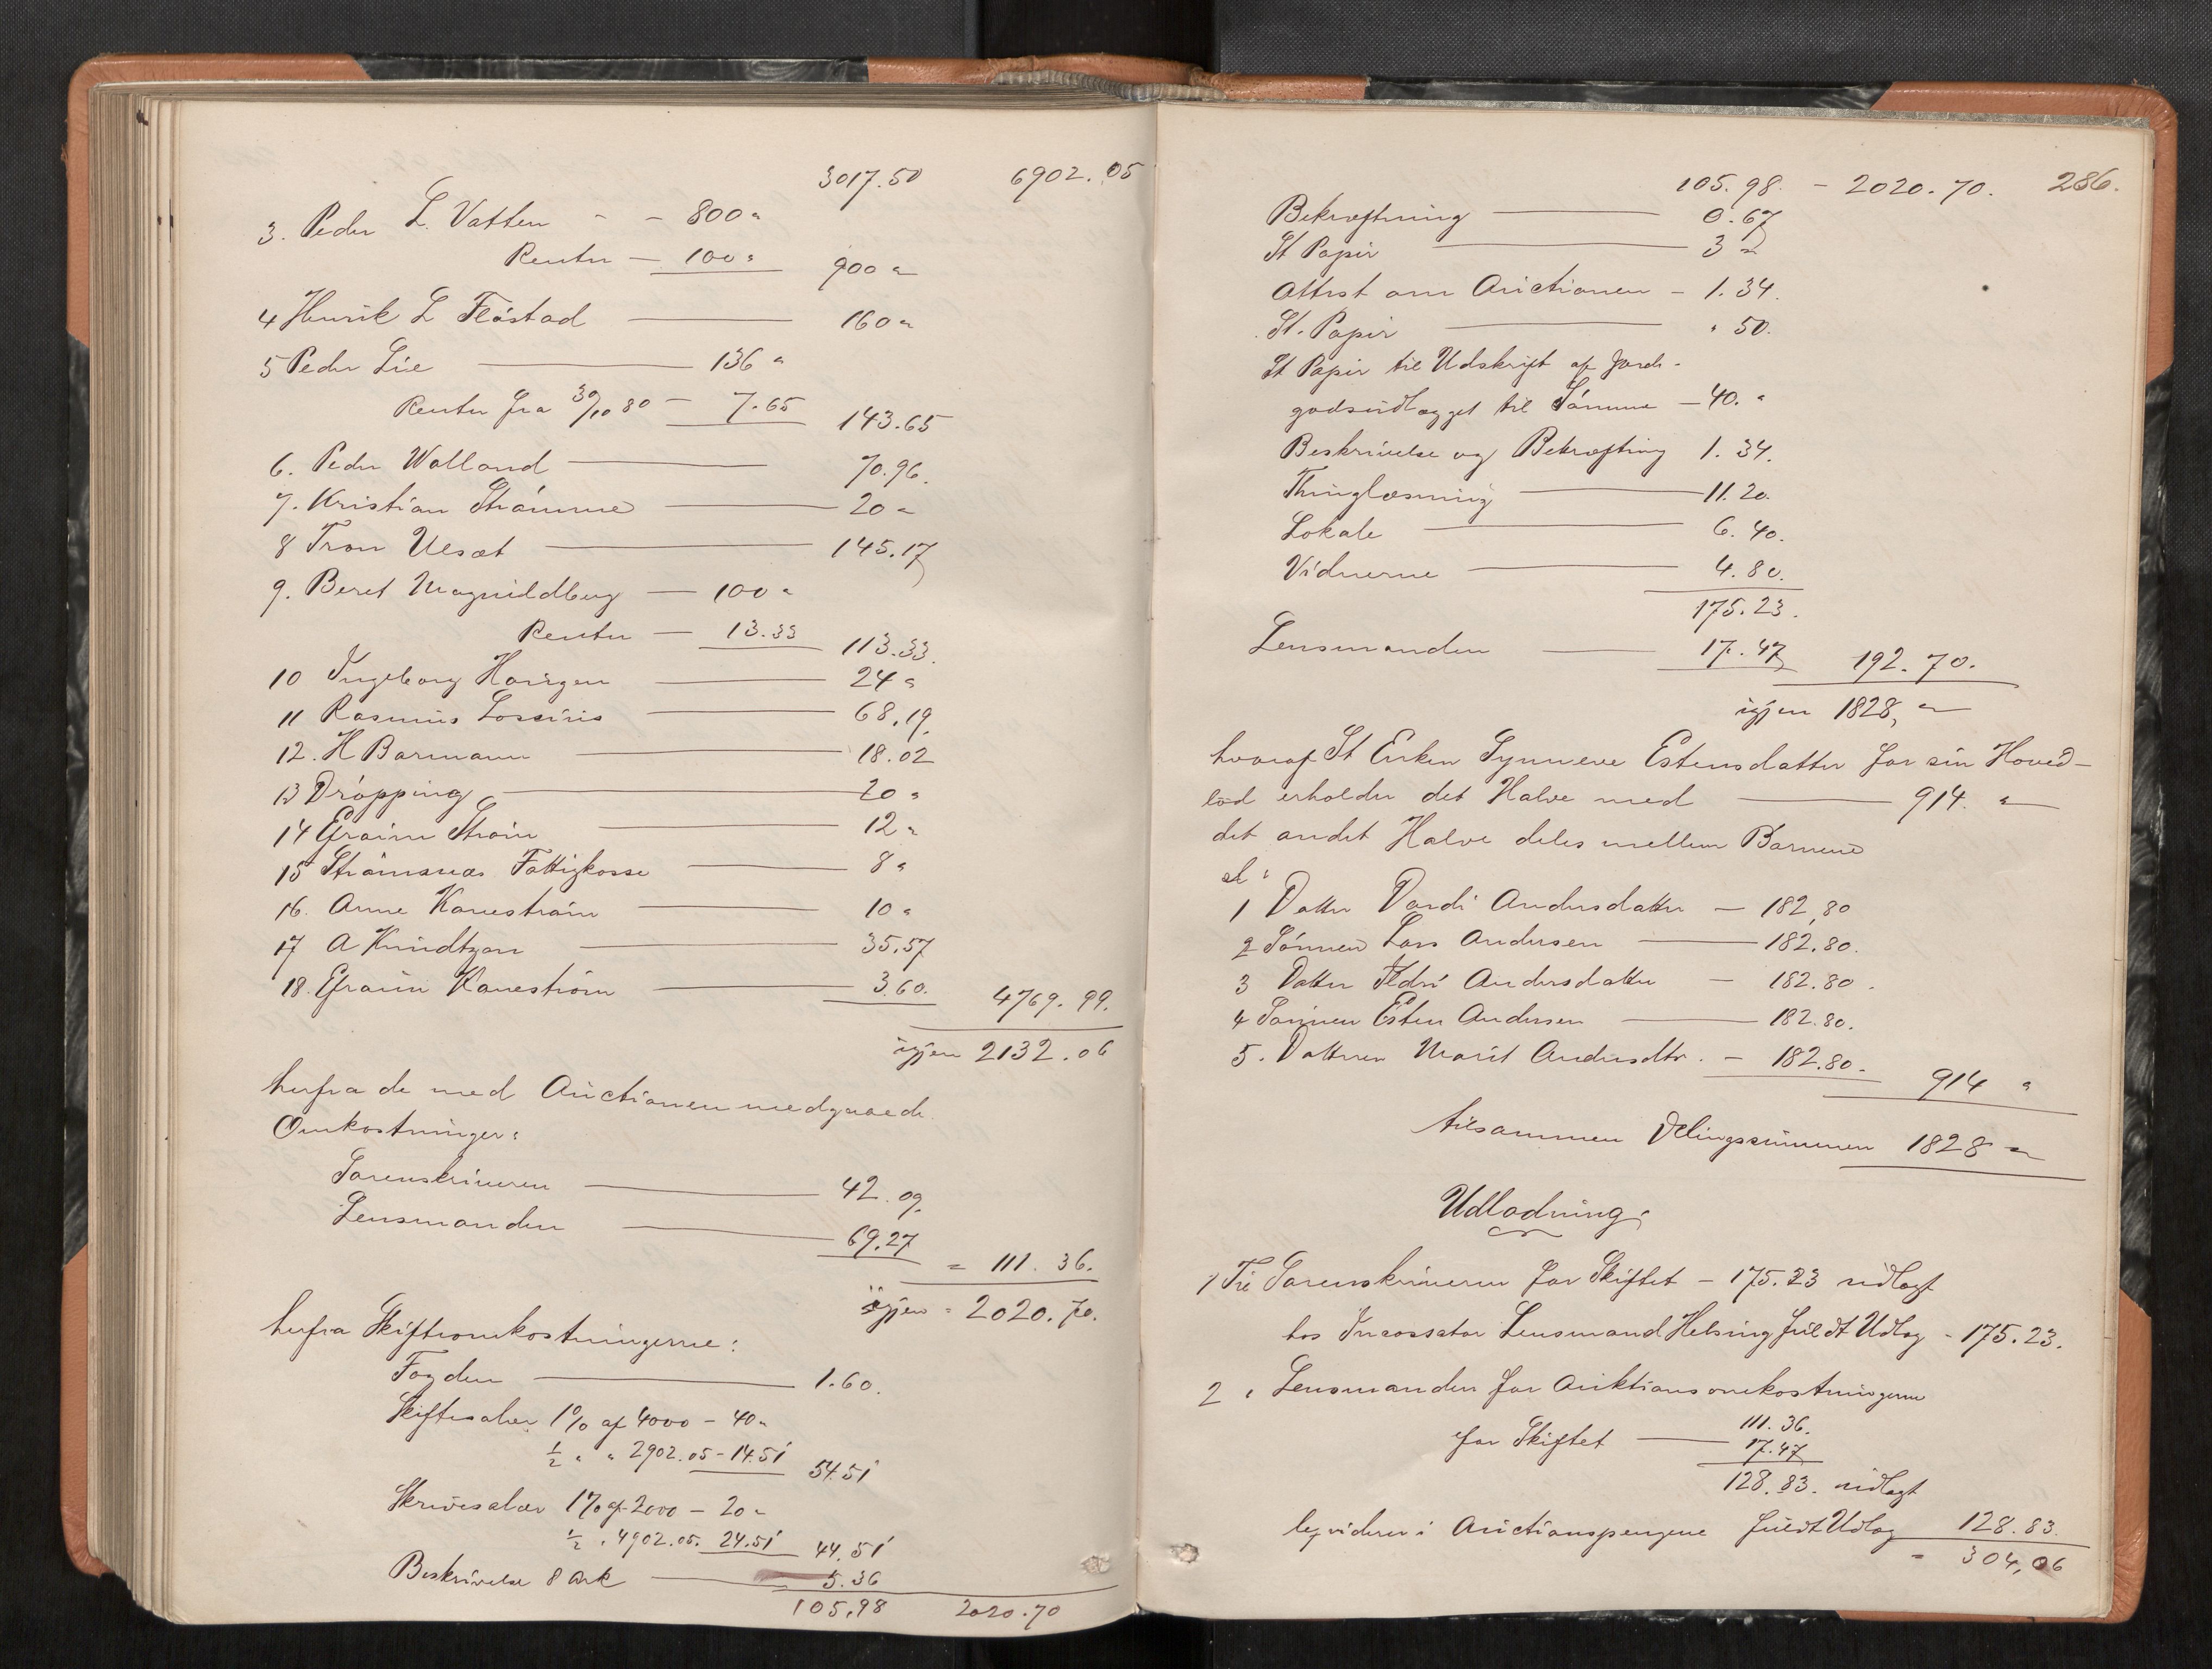 3017.50 6902.05
3. Peder L. Vatten - - 800 "
Renter - 100 " 900 "
4 Henrik L Fløstad 160 "
5 Peder Lie 136 "
Renter fra 30/10 80 - 7.65 143.65
6. Peder Wolland 70.96.
7. Kristian Strømme 20 "
8 Tron Ulsæt 145.17
9. Beret Magnildberg - 100 "
Renter - 13.33 113.33.
10 Ingeborg Haugen 24 "
11 Rasmus Lossius 68.19.
12. H Barmann 18.02
13 Drøpping 20 "
14 Efraim Strøm 12 "
15 Strømsnæs Fattigkasse 8 "
16. Anne Kanestrøm 10 "
17 A Knudtzon 35.57
18. Efraim Kanestrøm 3.60. 4769.99.
igjen 2132.06
herfra de med Auctionen medgaaede
Omkostninger:
Sorenskriveren 42.09.
Lensmanden 69.27 = 111.36.
igjen = 2020.70.
herfra Skifteomkostningerne:
Fogden 1.60.
Skiftesalær 1% af 4000 - 40 "
1/2 " " 2902.05 - 14.51 54.51
Skriversalær 1% af 2000 - 20 "
1/2 " 4902.05. 24.51 44.51
Beskrivelse 8 Ark 5.36
105.98 2020.70
105.98. - 2020.70. 286.
Bekræftning 0.67
St Papir 3 "
Attest om Auctionen - 1.34.
St. Papir " 50.
St Papir til Udskrift af Jorde-
godsudlægget til Sønnen - 40. "
Beskrivelse og Bekræftning 1.34.
Thinglæsning 11.20.
Lokale 6.40.
Vidnerne 4.80.
175.23.
Lensmanden 17.47 192.70.
igjen 1828, "
hvoraf St Enken Synneve Estensdatter for sin Hoved-
lod erholder det Halve med 914. "
det andet Halve deles mellem Børnene
sl:
1 Datter Dordi Andersdatter - 182,80
2 Sønnen Lars Andersen 182.80.
3 Datter Ildri Andersdatter - 182.80.
4 Sønnen Esten Andersen 182.80.
5. Datteren Marit Andersdtr. - 182.80. 914 "
tilsammen Delingssummen 1828 "
Udlodning:
1 Til Sorenskriveren for Skiftet - 175.23 udlagt
hos Incassator Lensmand Helsing fuldt Udlæg - 175.23.
2 " Lensmanden for Auktionsomkostningerne
111.36.
for Skiftet 17.47
128.83. udlagt
liqviderer i Auctionspengene fuldt Udlæg 128.83.
= 304,06